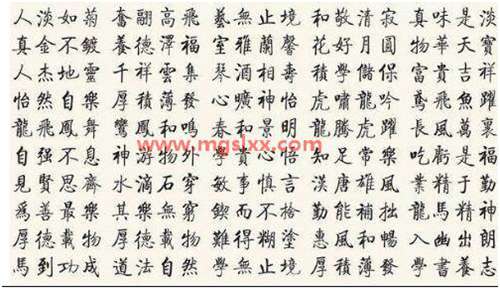 人淡如菊 奮翮高飛 藝無止境 和敬清寂 真味是淡
真金不鍍 養德澤福 室雅蘭馨 花好月圓 物華天寶
人杰地靈 千祥雲集 琴酒相壽 積學儲保 富貴吉祥
怡然自樂 厚積薄發 心曠神怡 虎嘯龍吟 鳶飛魚躍
龍飛鳳舞 鸞鳳和鳴 春和景明 龍騰虎躍 長風萬裏
www.mgslxx.com
自強不息 神游物外 學貫心悟 知足常樂 吃虧是福
見賢思齊 水滴石穿 敏事慎言 漢唐雄風 業精于勤
為善最樂 其樂無窮 鍥而不捨 勤能補拙 龍馬精神
厚德載物 厚德載物 難得糊塗 惠風和暢 幽出朗
馬到功成 道法自然 學無止境 厚積薄發 學書養志